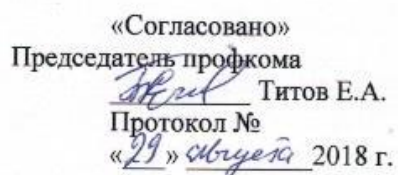 «Согласовано»
Председатель профкома
Титов Е.А.
Протокол №
«29» августа 2018 г.